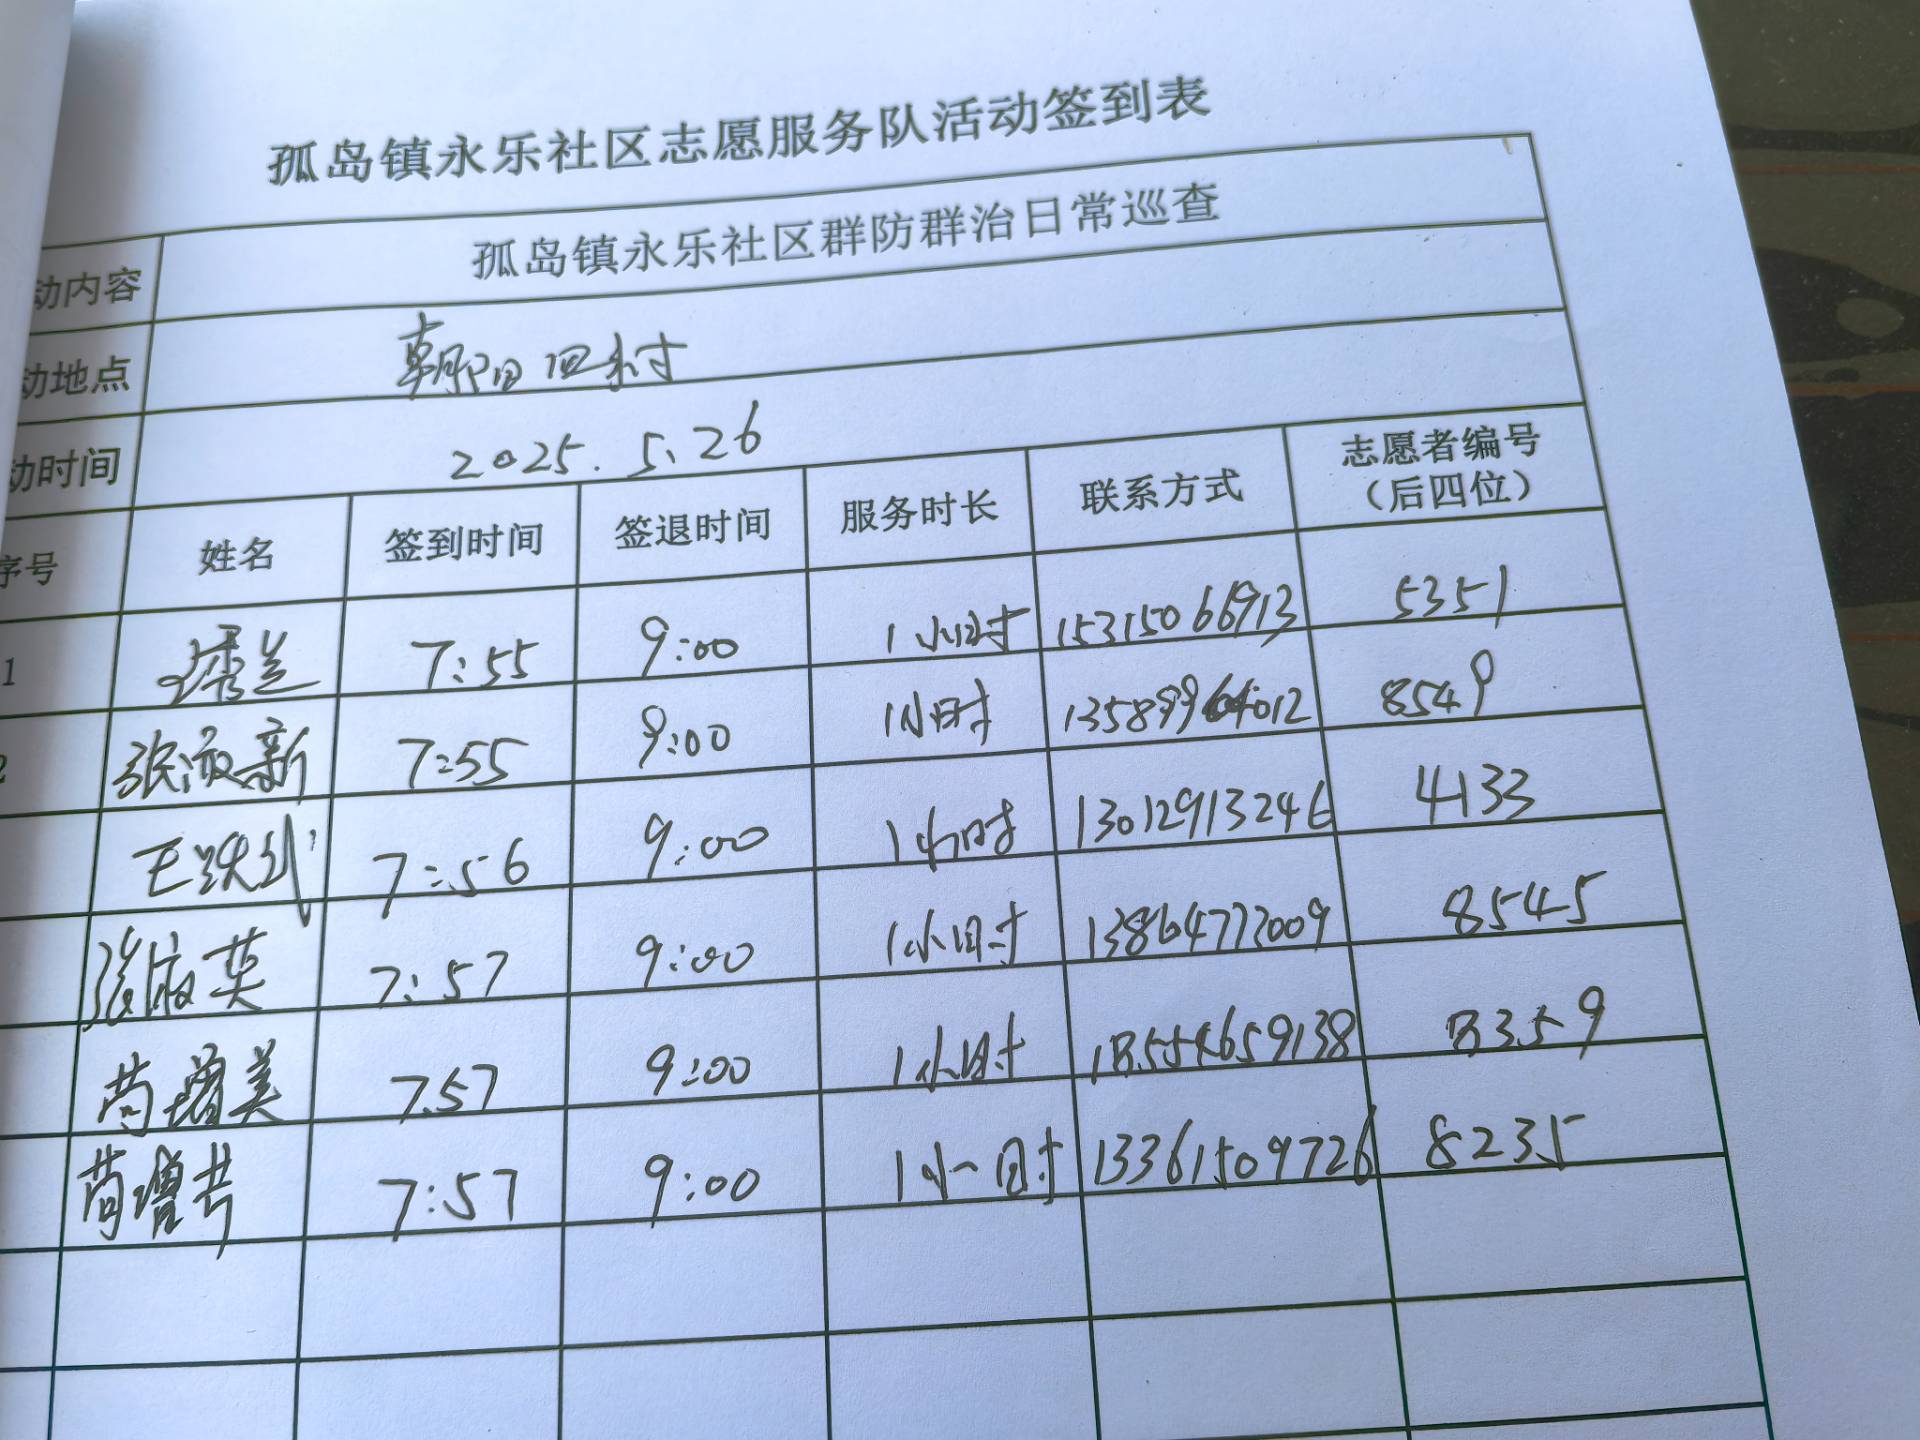 孤岛镇永乐社区志愿服务队活动签到表
动内容 孤岛镇永乐社区群防群治日常巡查
动地点 朝阳四村
动时间 2025.5.26
序号 姓名 签到时间 签退时间 服务时长 联系方式 志愿者编号
（后四位）
1 7:55 9:00 1小时 15315066913 5351
2 张淑新 7:55 9:00 1小时 8549
7:56 9:00 1小时 13012913246 4133
张淑英 7:57 9:00 1小时 13864773009 8545
苘增美 7.57 9:00 1小时 18554659138 8359
苘增芸 7:57 9:00 1小时 13361509726 8235